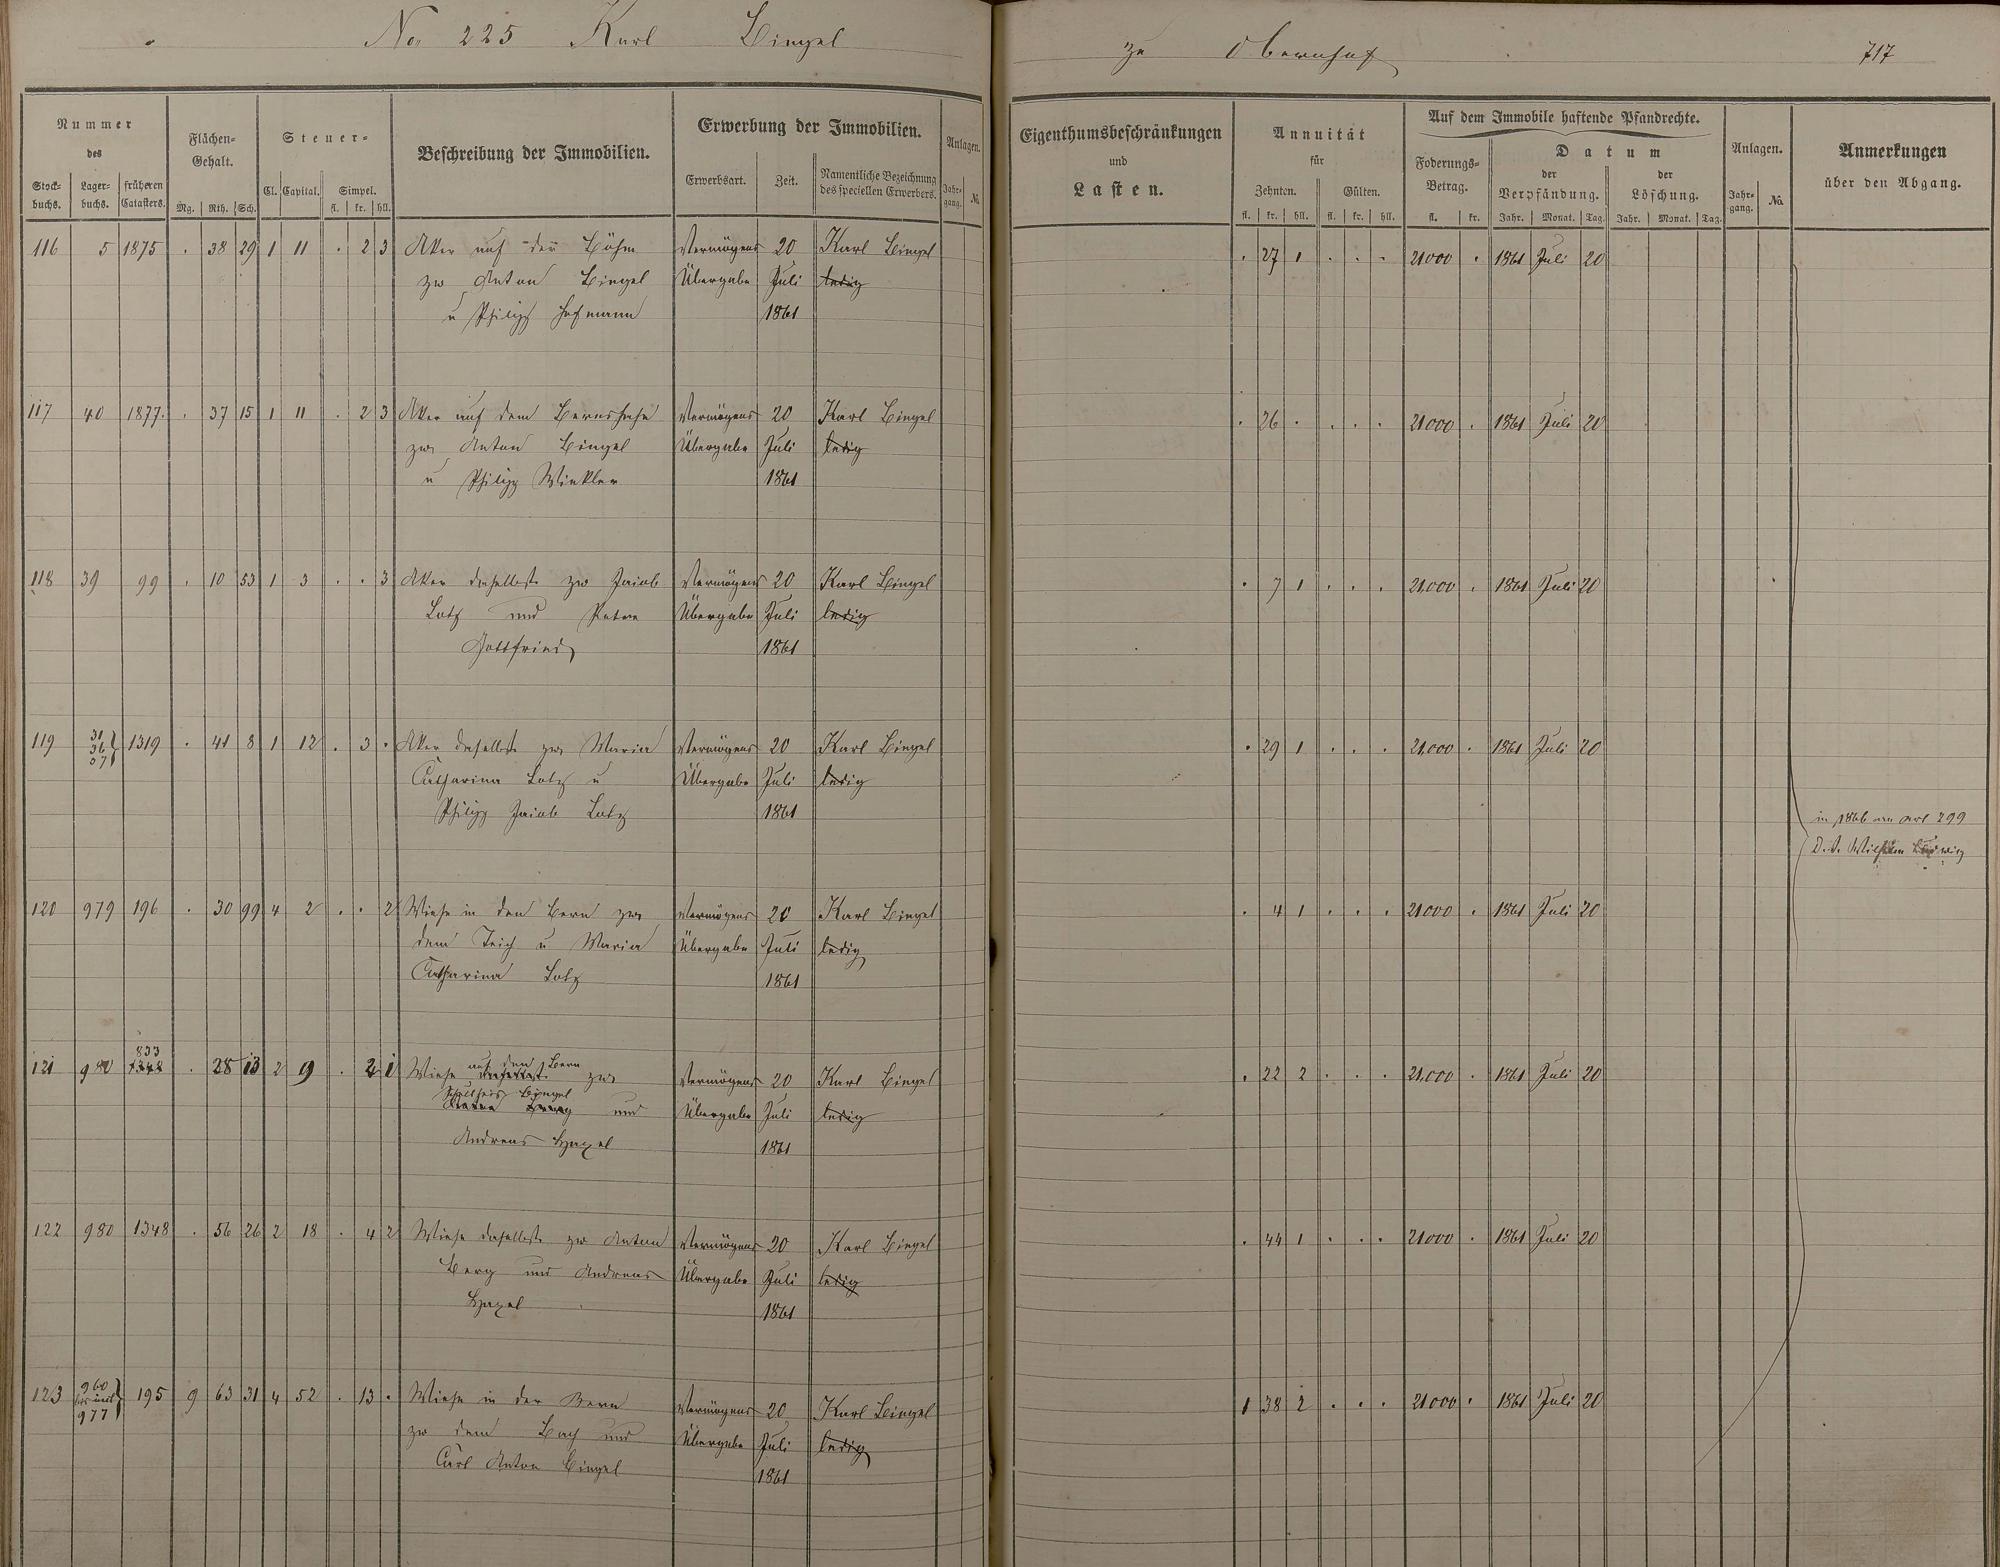 No. 225 Karl Bingel zu Obernhof 717
Nummer des
Flächen-Gehalt.
Steuer-
Beschreibung der Immobilien.
Erwerbung der Immobilien.
Anlagen.
Stock-buchs. Lager-buchs. früheren Catasters. Mg. Rth. Sch. Cl. Capital. Simpel. fl. kr. hll. Erwerbsart. Zeit. Namentliche Bezeichnung des speciellen Erwerbers. Jahr-gang. No.
Eigenthumsbeschränkungen und Lasten.
Annuität für
Zehnten. Gülten.
fl. kr. hll. fl. kr. hll.
Auf dem Immobile haftende Pfandrechte.
Foderungs-Betrag. fl. kr.
Datum
der Verpfändung. der Löschung.
Jahr. Monat. Tag. Jahr. Monat. Tag.
Anlagen.
Jahr-gang. No.
Anmerkungen über den Abgang.
116 5 1875 . 38 29 1 11 . 2 3 Aker auf den Böhm Vermögens 20 Karl Bingel . 27 1 . . . 21000 . 1861 Juli 20
zw Anton Bingel Übergabe Juli ledig
u Philipp Hofmann 1861
117 40 1877. . 37 15 1 11 . 2 3 Aker auf dem Bernshahn Vermögens 20 Karl Bingel . 26 . . . . 21000 . 1861 Juli 20
zw Anton Bingel Übergabe Juli ledig
u Philipp Winkler 1861
118 39 99 . 10 53 1 3 . . 3 Aker daselbst zw Jacob Vermögens 20 Karl Bingel . 7 1 . . . 21000 . 1861 Juli 20
Lotz und Peter Übergabe Juli ledig
Gottfried 1861
119 31 36 37 1319 . 41 8 1 12 . 3 . Aker daselbst zw Maria Vermögens 20 Karl Bingel . 29 1 . . . 21000 . 1861 Juli 20
Catharina Lotz u Übergabe Juli ledig
Philipp Jacob Lotz 1861
in 1866 an Art 299
D. V. Wilhelm Ludwig
120 979 196 . 30 99 4 2 . . 2 Wiese in den Bern zw Vermögens 20 Karl Bingel . 4 1 . . . 21000 . 1861 Juli 20
dem Teich u Maria Übergabe Juli ledig
Catharina Lotz 1861
833
121 980 1348 . 28 13 2 9 . 2 1 Wiese auf den Bern daselbst zw Vermögens 20 Karl Bingel . 22 2 . . . 21000 . 1861 Juli 20
Schultheis Bingel
und Übergabe Juli ledig
Andreas Hazel 1861
122 980 1348 . 56 26 2 18 . 4 2 Wiese daselbst zw Anton Vermögens 20 Karl Bingel . 44 1 . . . 21000 . 1861 Juli 20
Berg und Andreas Übergabe Juli ledig
Hazel 1861
123 960 bis incl 977 195 9 63 31 4 52 . 13 . Wiese in der Bern Vermögens 20 Karl Bingel 1 38 2 . . . 21000 . 1861 Juli 20
zw dem Bach und Übergabe Juli ledig
Carl Anton Bingel 1861